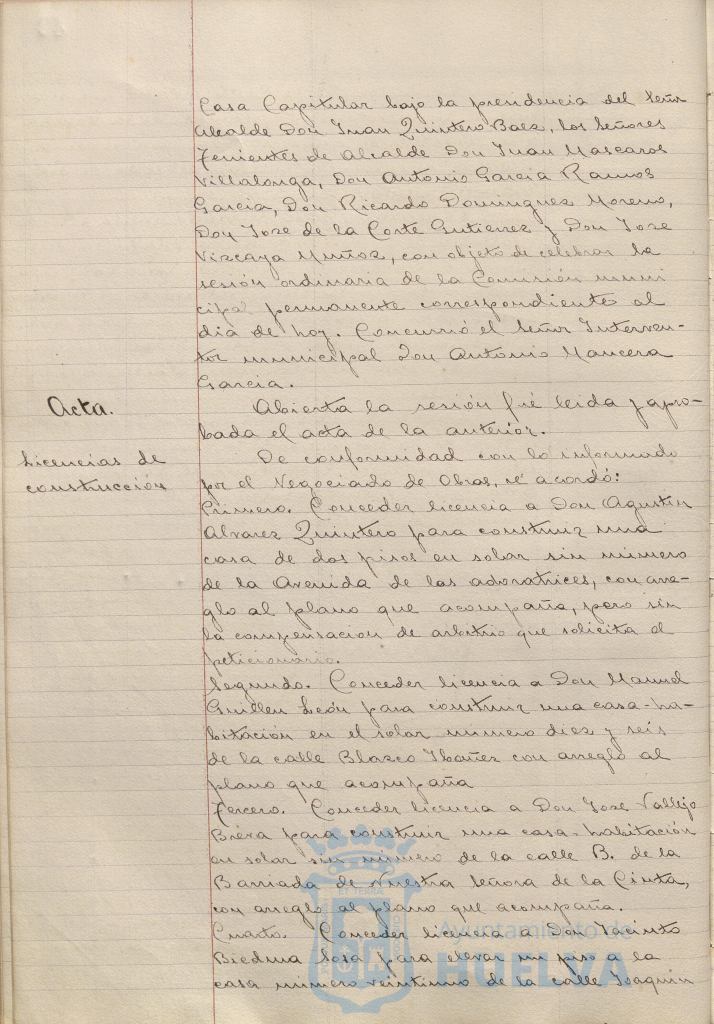 Casa Capitular bajo la presidencia del Señor
Alcalde Don Juan Quintero Baez, los Señores
Tenientes de Alcalde Don Juan Mascaros
Villalonga, Don Antonio Garcia Ramos
Garcia, Don Ricardo Dominguez Moreno,
Don Jose de la Corte Gutierrez y Don Jose
Vizcaya Muñoz, con objeto de celebrar la
sesión ordinaria de la Comisión muni
cipal permanente correspondiente al
dia de hoy. Concurrió el Señor Interven-
tor municipal Don Antonio Mancera
Garcia.
Acta.
Abierta la sesión fué leida y apro-
bada el acta de la anterior.
Licencias de
construcción
De conformidad con lo informado
por el Negociado de Obras, se acordó:
Primero. Conceder licencia a Don Agustin
Alvarez Quintero para construir una
casa de dos pisos en solar sin número
de la Avenida de las adoratrices, con arre-
glo al plano que acompaña, pero sin
la compensacion de arbitrio que solicita el
peticionario.
Segundo. Conceder licencia a Don Manuel
Guillen León para construir una casa-ha-
bitación en el solar número diez y seis
de la calle Blazco Ibañez con arreglo al
plano que acompaña
Tercero. Conceder licencia a Don Jose Vallejo
para construir una casa-habitación
en solar sin número de la calle B. de la
Barriada de Nuestra Señora de la Cinta,
con arreglo al plano que acompaña.
Cuarto. Conceder licencia a Don Jacinto
Biedma Sosa para elevar un piso a la
casa número veintiuno de la calle Joaquin
Ayuntamiento de
HUELVA